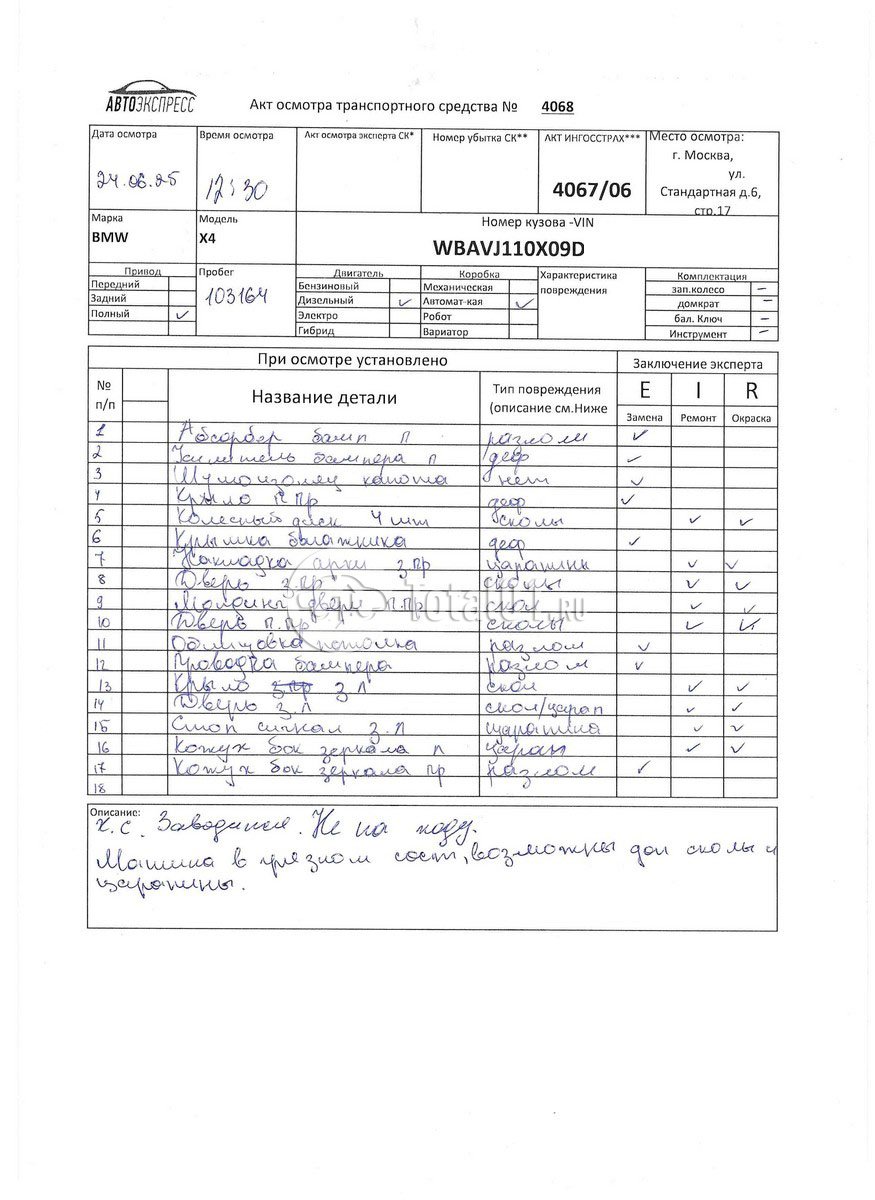 АВТОЭКСПРЕСС
Акт осмотра транспортного средства № 4068
Дата осмотра
24.06.25
Время осмотра
12:30
Акт осмотра эксперта СК*
Номер убытка СК**
АКТ ИНГОССТРАХ***
4067/06
Место осмотра:
г. Москва,
ул.
Стандартная д.6,
стр.17
Марка
BMW
Модель
X4
Номер кузова -VIN
WBAVJ110X09D
Привод
Передний
Задний
Полный ✓
Пробег
103164
Двигатель
Бензиновый
Дизельный ✓
Электро
Гибрид
Коробка
Механическая
Автомат-кая ✓
Робот
Вариатор
Характеристика
повреждения
Комплектация
зап.колесо –
домкрат –
бал. Ключ –
Инструмент –
При осмотре установлено
Заключение эксперта
№
п/п
Название детали
Тип повреждения
(описание см.Ниже
E I R
Замена Ремонт Окраска
1 Абсорбер бамп п разлом ✓
2 Усилитель бампера п деф ✓
3 Шумоизоляц капота нет ✓
4 Крыло п пр деф ✓
5 Колесный диск 4 шт сколы ✓ ✓
6 Крышка багажника деф ✓
7 Накладка арки з.пр царапины ✓ ✓
8 Дверь з.пр сколы ✓ ✓
9 Молдинг двери п.пр скол ✓ ✓
10 Дверь п.пр сколы ✓ ✓
11 Облицовка потолка разлом ✓
12 Проводка бампера разлом ✓
13 Крыло з пр з л скол ✓ ✓
14 Дверь з.л скол/царап ✓ ✓
15 Стоп сигнал з.л царапина ✓ ✓
16 Кожух бок зеркала л царап ✓ ✓
17 Кожух бок зеркала пр разлом ✓
18
TotalUt.RU
Описание:
х.с. Заводится. Не на ходу.
Машина в грязном сост, возможны доп сколы и
царапины.